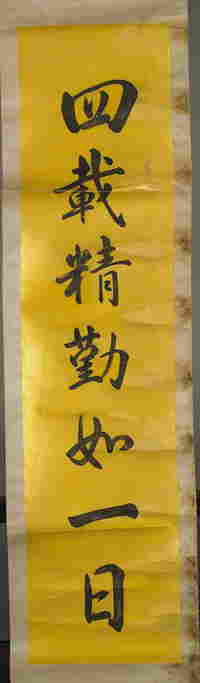 四載精勤如一日